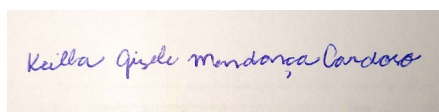 Keilla Gisele Mendonça Cardoso